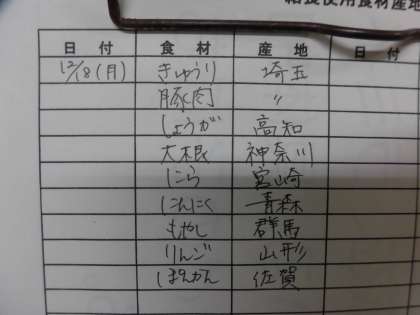 給食使用食材産地
日付 食材 産地
12/18(月) きゅうり 埼玉
豚肉 〃
しょうが 高知
大根 神奈川
にら 宮崎
にんにく 青森
もやし 群馬
りんご 山形
ぽんかん 佐賀